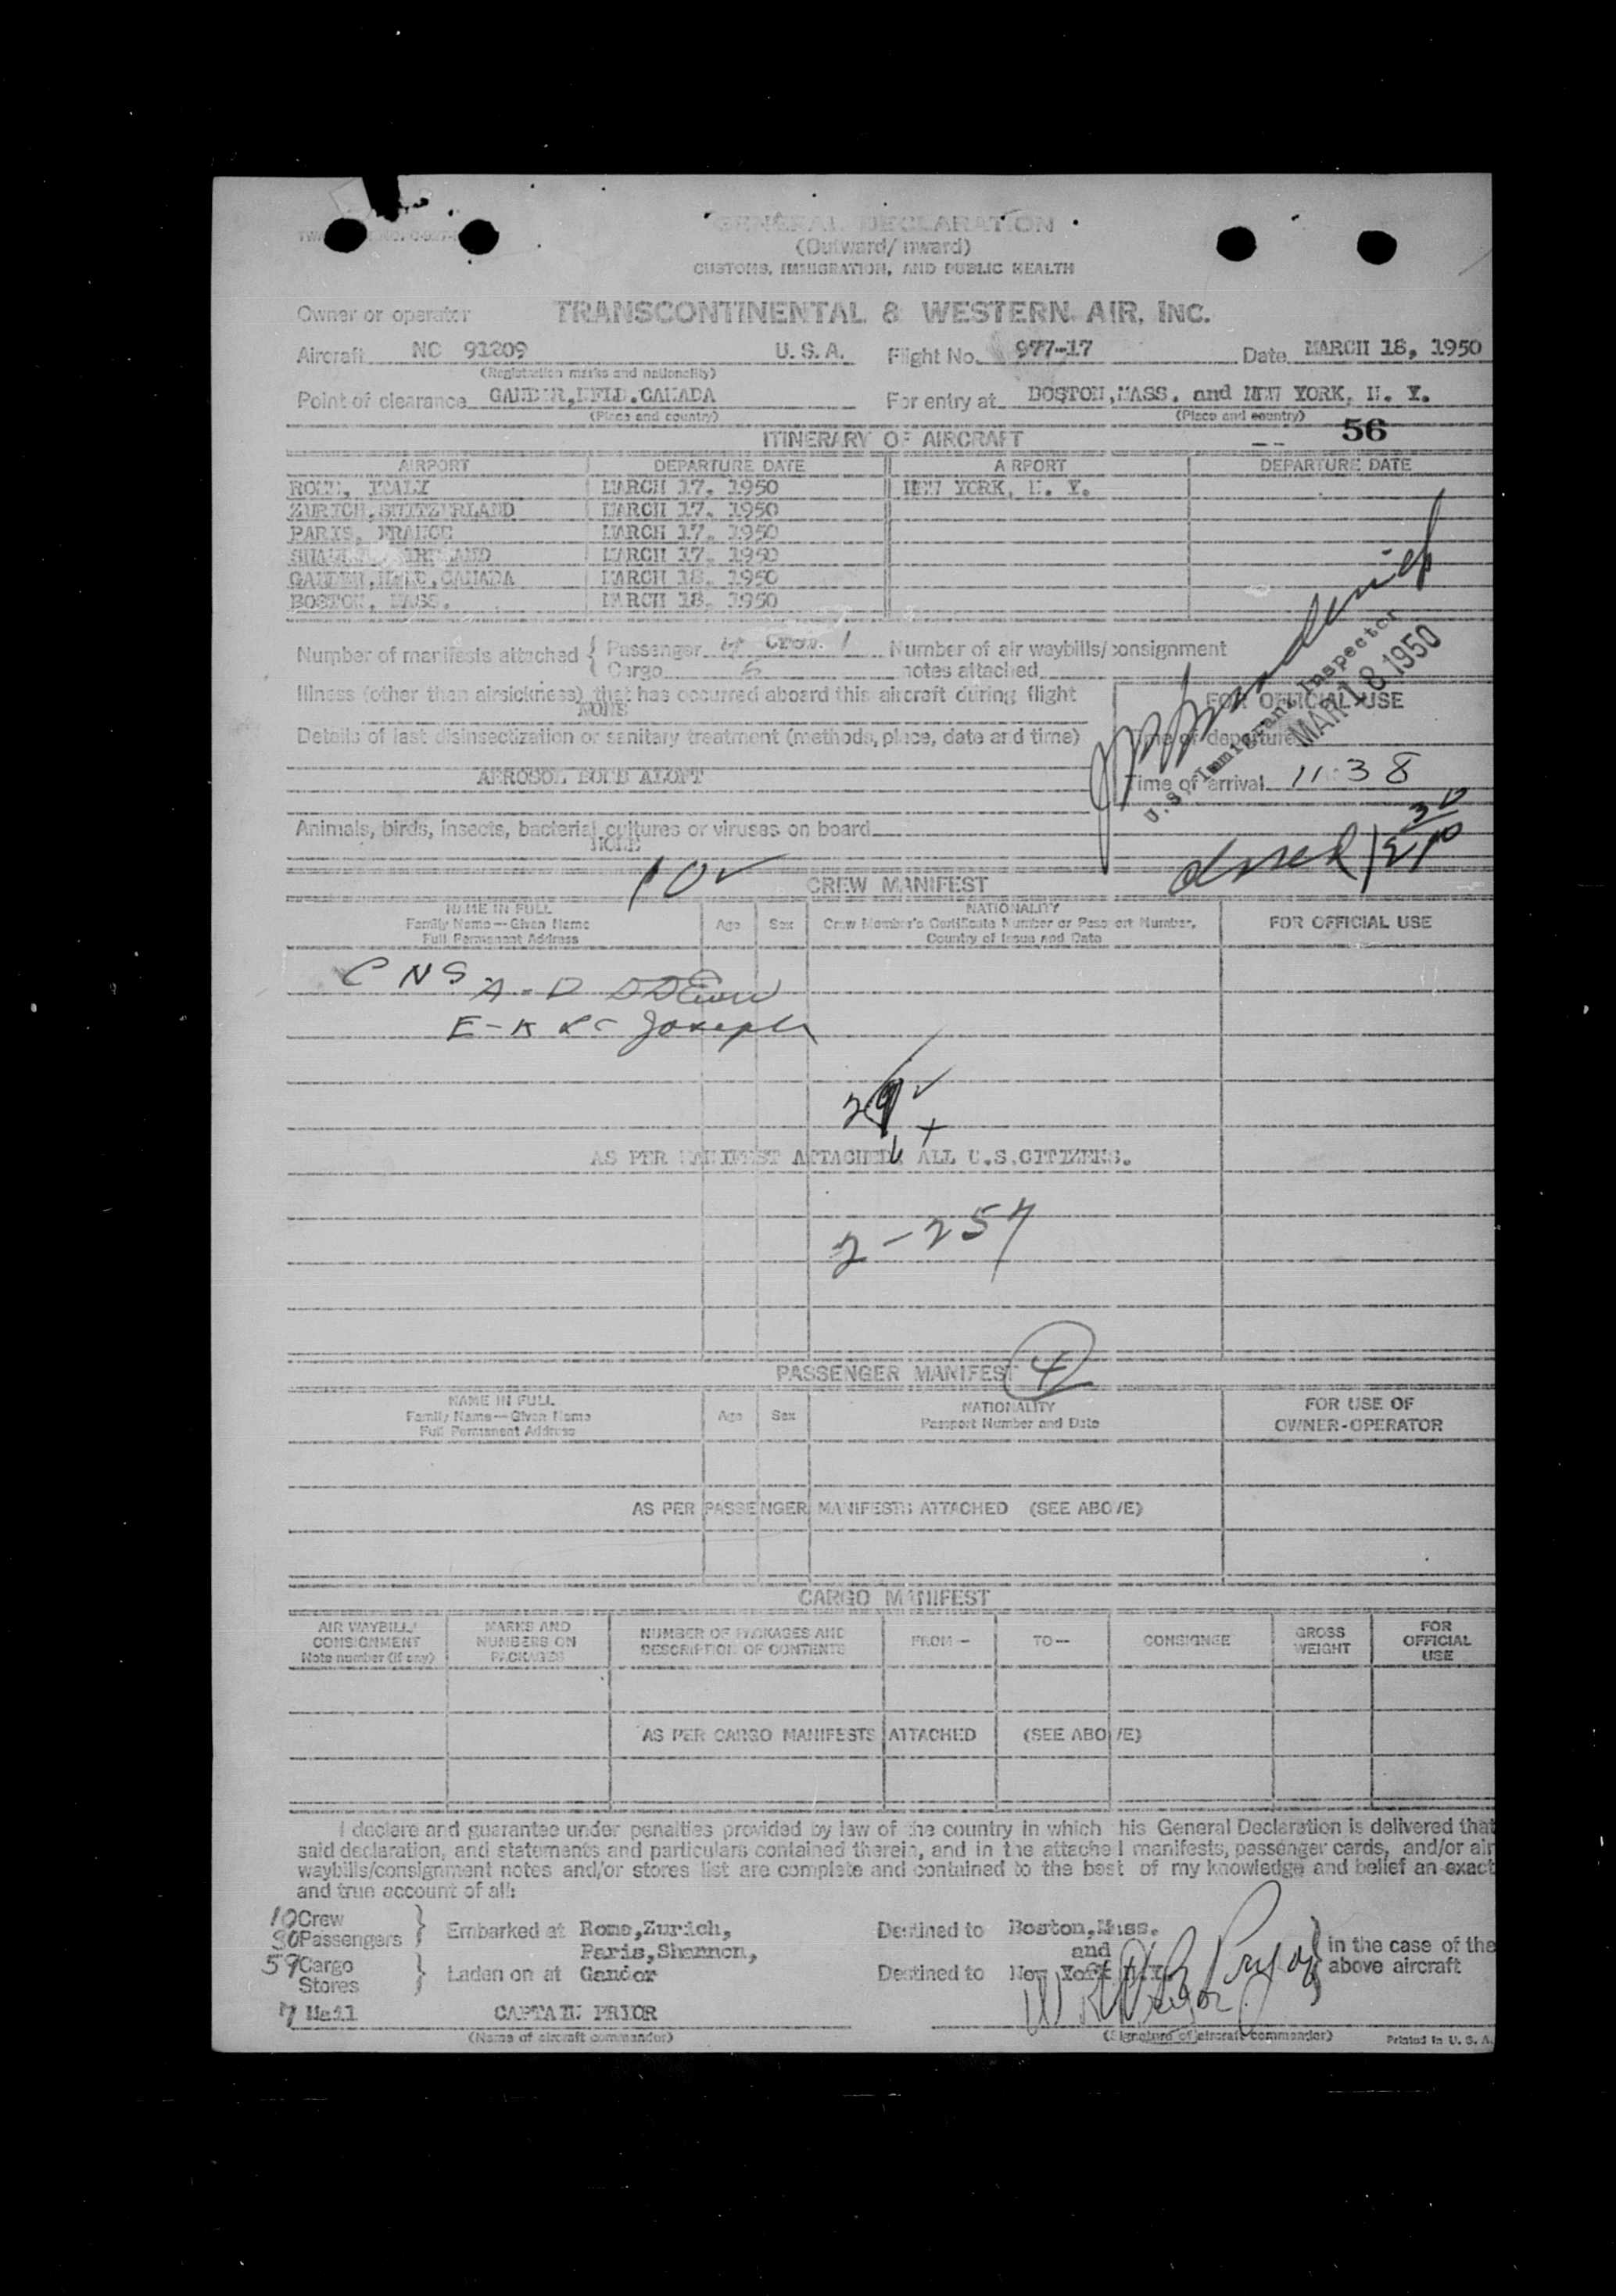 GENERAL DECLARATION
(Outward/Inward)
CUSTOMS, IMMIGRATION, AND PUBLIC HEALTH
Owner or operator TRANSCONTINENTAL & WESTERN AIR, INC.
Aircraft NC 91209 U.S.A. Flight No. 977-17 Date MARCH 18, 1950
(Registration marks and nationality)
Point of clearance GANDER,NFLD.CANADA For entry at BOSTON,MASS. and NEW YORK, N. Y.
(Place and country) (Place and country)
56
ITINERARY OF AIRCRAFT
AIRPORT DEPARTURE DATE AIRPORT DEPARTURE DATE
ROME, ITALY MARCH 17, 1950 NEW YORK, N. Y.
ZURICH,SWITZERLAND MARCH 17, 1950
PARIS, FRANCE MARCH 17, 1950
SHANNON, IRELAND MARCH 17, 1950
GANDER,NFLD,CANADA MARCH 18, 1950
BOSTON, MASS. MARCH 18, 1950
Number of manifests attached { Passenger 4 Crew 1 Number of air waybills/consignment
{ Cargo 6 notes attached
Illness (other than airsickness) that has occurred aboard this aircraft during flight
NONE
FOR OFFICIAL USE
Details of last disinsectization or sanitary treatment (methods, place, date and time)
Time of departure
AEROSOL BOMB ALOFT
Time of arrival 11:38
U.S. Immigrant Inspector
MAR 18 1950
Animals, birds, insects, bacterial cultures or viruses on board
NONE
10 ✓
CREW MANIFEST
NAME IN FULL
Family Name—Given Name
Full Permanent Address
Age Sex
NATIONALITY
Crew Member's Certificate Number or Passport Number,
Country of Issue and Date
FOR OFFICIAL USE
CNS
Joseph
AS PER MANIFEST ATTACHED. ALL U.S.CITIZENS.
2-257
PASSENGER MANIFEST 4
NAME IN FULL
Family Name—Given Name
Full Permanent Address
Age Sex
NATIONALITY
Passport Number and Date
FOR USE OF
OWNER-OPERATOR
AS PER PASSENGER MANIFESTS ATTACHED (SEE ABOVE)
CARGO MANIFEST
AIR WAYBILL/
CONSIGNMENT
Note number (if any)
MARKS AND
NUMBERS ON
PACKAGES
NUMBER OF PACKAGES AND
DESCRIPTION OF CONTENTS
FROM— TO— CONSIGNEE
GROSS
WEIGHT
FOR
OFFICIAL
USE
AS PER CARGO MANIFESTS ATTACHED (SEE ABOVE)
I declare and guarantee under penalties provided by law of the country in which this General Declaration is delivered that
said declaration, and statements and particulars contained therein, and in the attached manifests, passenger cards, and/or air
waybills/consignment notes and/or stores list are complete and contained to the best of my knowledge and belief an exact
and true account of all:
10 Crew
30 Passengers } Embarked at Rome,Zurich, Destined to Boston,Mass.
Paris,Shannon, and
59 Cargo
Stores } Laden on at Gander Destined to New York N.Y.
} in the case of the
above aircraft
7 Mail CAPTAIN PRIOR
(Name of aircraft commander) (Signature of aircraft commander) Printed in U. S. A.